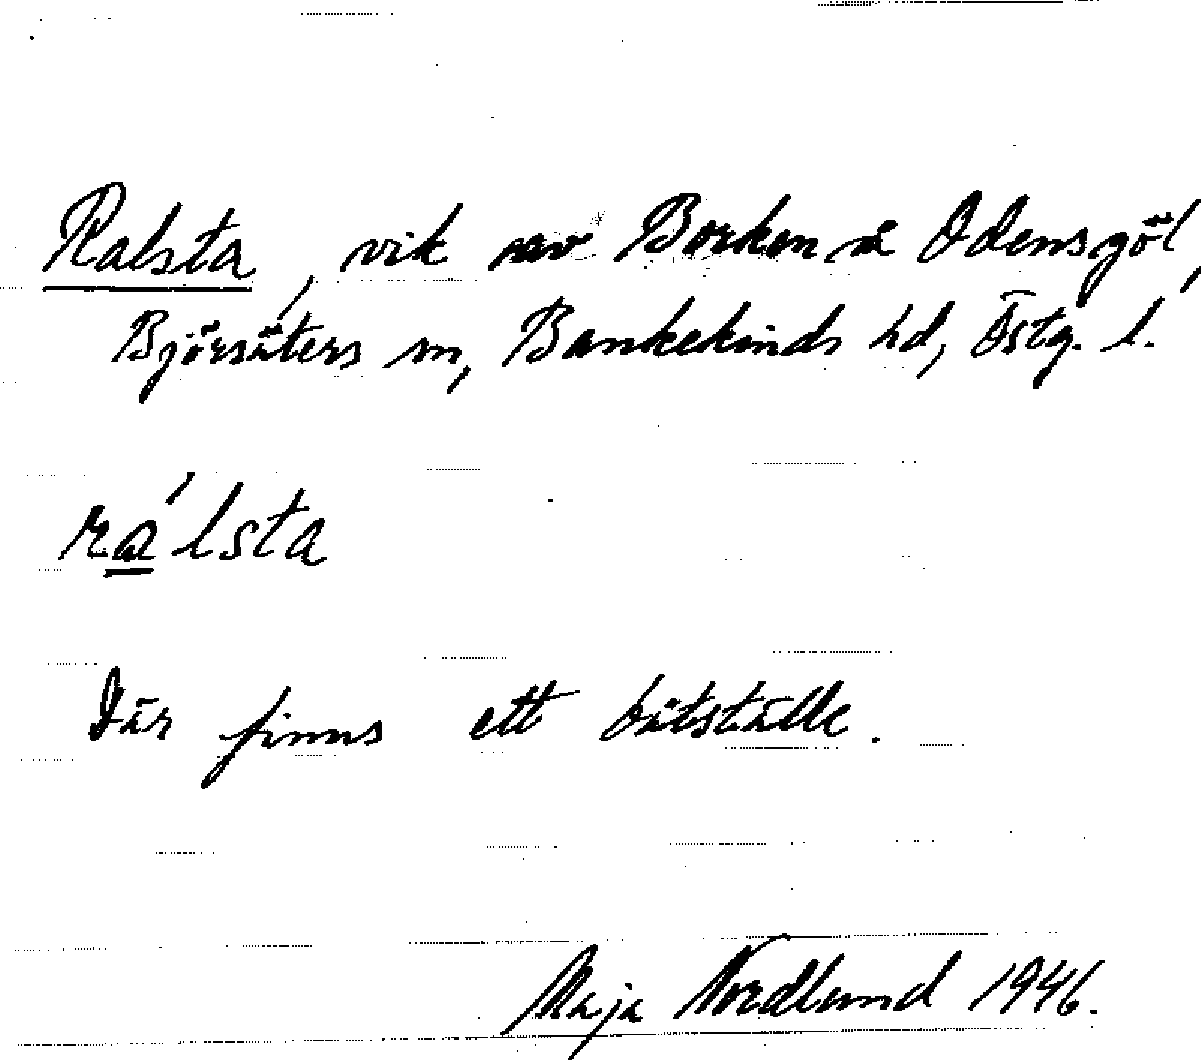 Ralsta, vik av Borken å Odensgöl,
Björsäters sn, Bankekinds hd, Östg. l.
ra´lsta
Där finns ett båtställe.
Maja Nordlund 1946.